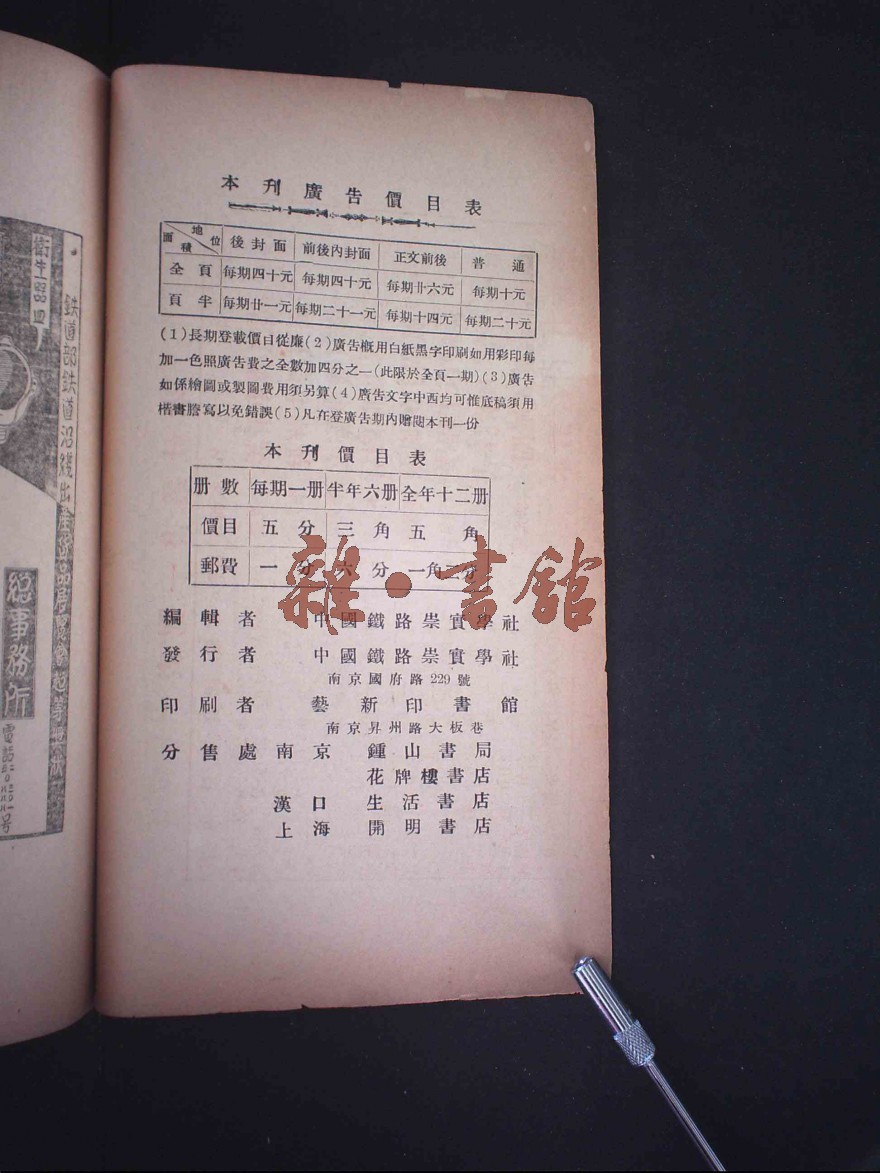 本刊廣告價目表
地位 面積 後封面 前後內封面 正文前後 普通
全頁 每期四十元 每期四十元 每期廿六元 每期十元
頁半 每期廿一元 每期二十一元 每期十四元 每期二十元
(1)長期登載價目從廉(2)廣告概用白紙黑字印刷如用彩印每
加一色照廣告費之全數加四分之一(此限於全頁一期)(3)廣告
如係繪圖或製圖費用須另算(4)廣告文字中西均可惟底稿須用
楷書謄寫以免錯誤(5)凡在登廣告期內贈閱本刊一份
本刊價目表
册數 每期一册 半年六册 全年十二册
價目 五分 三角 五角
郵費 一分 六分 一角二分
雜·書館
編輯者 中國鐵路崇實學社
發行者 中國鐵路崇實學社
南京國府路229號
印刷者 藝新印書館
南京昇州路大板巷
分售處 南京 鍾山書局
花牌樓書店
漢口 生活書店
上海 開明書店
鉄道部鉄道沿綫出產
總事務所
電話